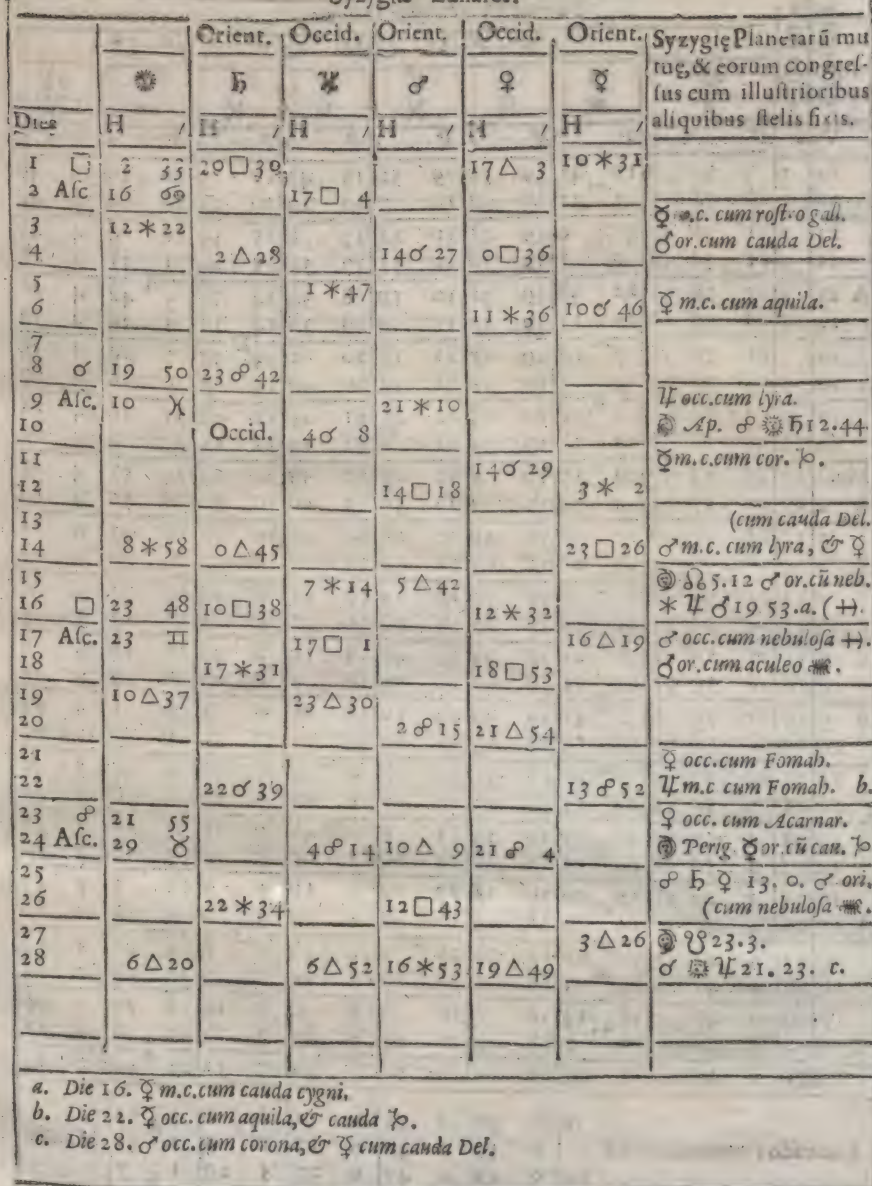 Syzygiæ Lunares.
Orient. Occid. Orient. Occid. Orient. Syzygię Planetarũ mu
☉ ♄ ♃ ♂ ♀ ☿ tuę, & eorum congreſ-
ſus cum illuſtrioribus
Dies H / H / H / H / H / H / aliquibus ſtelis fixis.
1 □ 2 33 20□39 17△ 3 10✶31
2 Aſc 16 ♋ 17□ 4
3 12✶22 ☿ m.c. cum roſtro gall.
4 2△28 14☌27 0□36 ♂ or. cum cauda Del.
5 1✶47
6 11✶36 10☌46 ☿ m.c. cum aquila.
7
8 ☌ 19 50 23☍42
9 Aſc. 10 ♓ 21✶10 ♃ occ. cum lyra.
10 Occid. 4☌ 8 Ap. ☍ ☉ ♄ 12.44
11 14☌29 ☿ m.c. cum cor. ♑.
12 14□18 3✶ 2
13 (cum cauda Del.
14 8✶58 0△45 23□26 ♂ m.c. cum lyra, & ☿
15 7✶14 5△42 ☊ 5.12 ♂ or. cũ neb.
16 □ 23 48 10□38 12✶32 ✶ ♃ ♂ 19 53.a. (♐.
17 Aſc. 23 ♊ 17□ 1 16△19 ♂ occ. cum nebuloſa ♐.
18 17✶31 18□53 ♂ or. cum aculeo ♏.
19 10△37 23△30
20 2☍15 21△54
21 ♀ occ. cum Fomah.
22 22☌39 13☍52 ♃ m.c cum Fomah. b.
23 ☍ 21 55 ♀ occ. cum Acarnar.
24 Aſc. 29 ♉ 4☍14 10△ 9 21☍ 4 Perig ☿ or. cũ cau. ♑
25 ☍ ♄ ♀ 13. 0. ♂ ori.
26 22✶34 12□43 (cum nebuloſa ♏.
27 3△26 ☋ 23.3.
28 6△20 6△52 16✶53 19△49 ☌ ☉ ♃ 21. 23. c.
a. Die 16. ☿ m.c. cum cauda cygni.
b. Die 22. ☿ occ. cum aquila, & cauda ♑.
c. Die 28. ♂ occ. cum corona, & ☿ cum cauda Del.